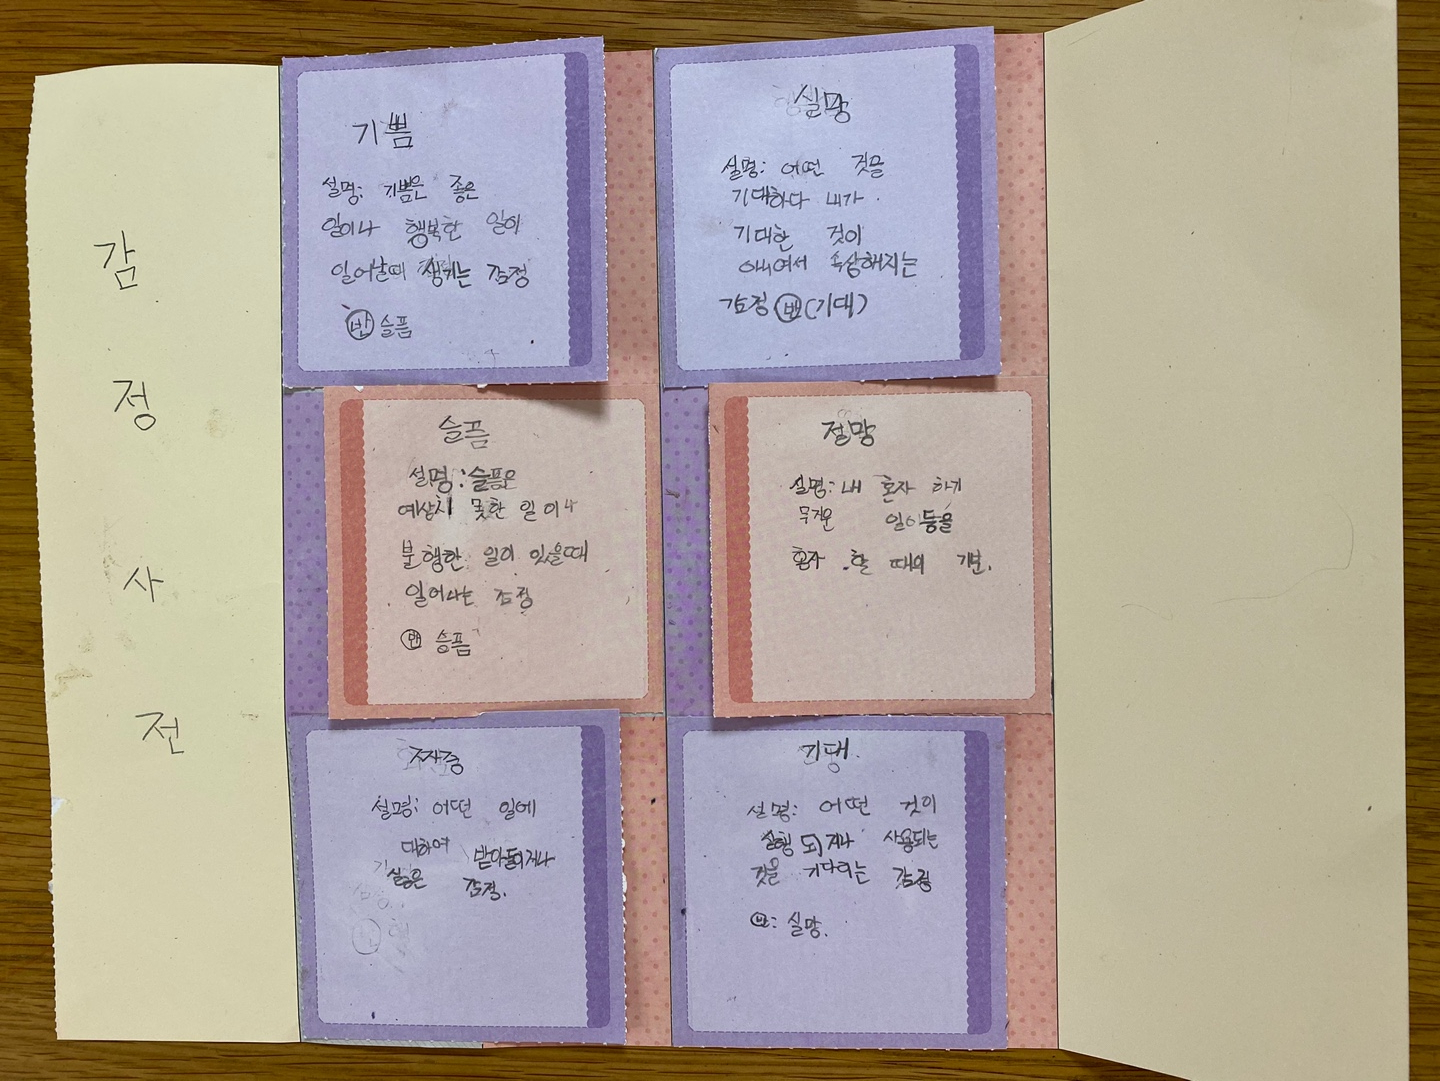 감
정
사
전
기쁨
설명: 기쁨은 좋은
일이나 행복한 일이
일어날때 생기는 감정
반 슬픔
실망
설명: 어떤 것을
기대하다 내가
기대한 것이
아니여서 속상해지는
감정 반 (기대)
슬픔
설명: 슬픔은
예상치 못한 일이나
불행한 일이 있을때
일어나는 감정
반 슬픔
절망
설명: 내 혼자 하기
무거운 일이듬을
혼자 할 때의 기분.
짜증
설명: 어떤 일에
대하여 받아들이거나
싫은 감정.
기댸.
설명: 어떤 것이
실행 되거나 사용되는
것을 기다리는 감정
반: 실망.